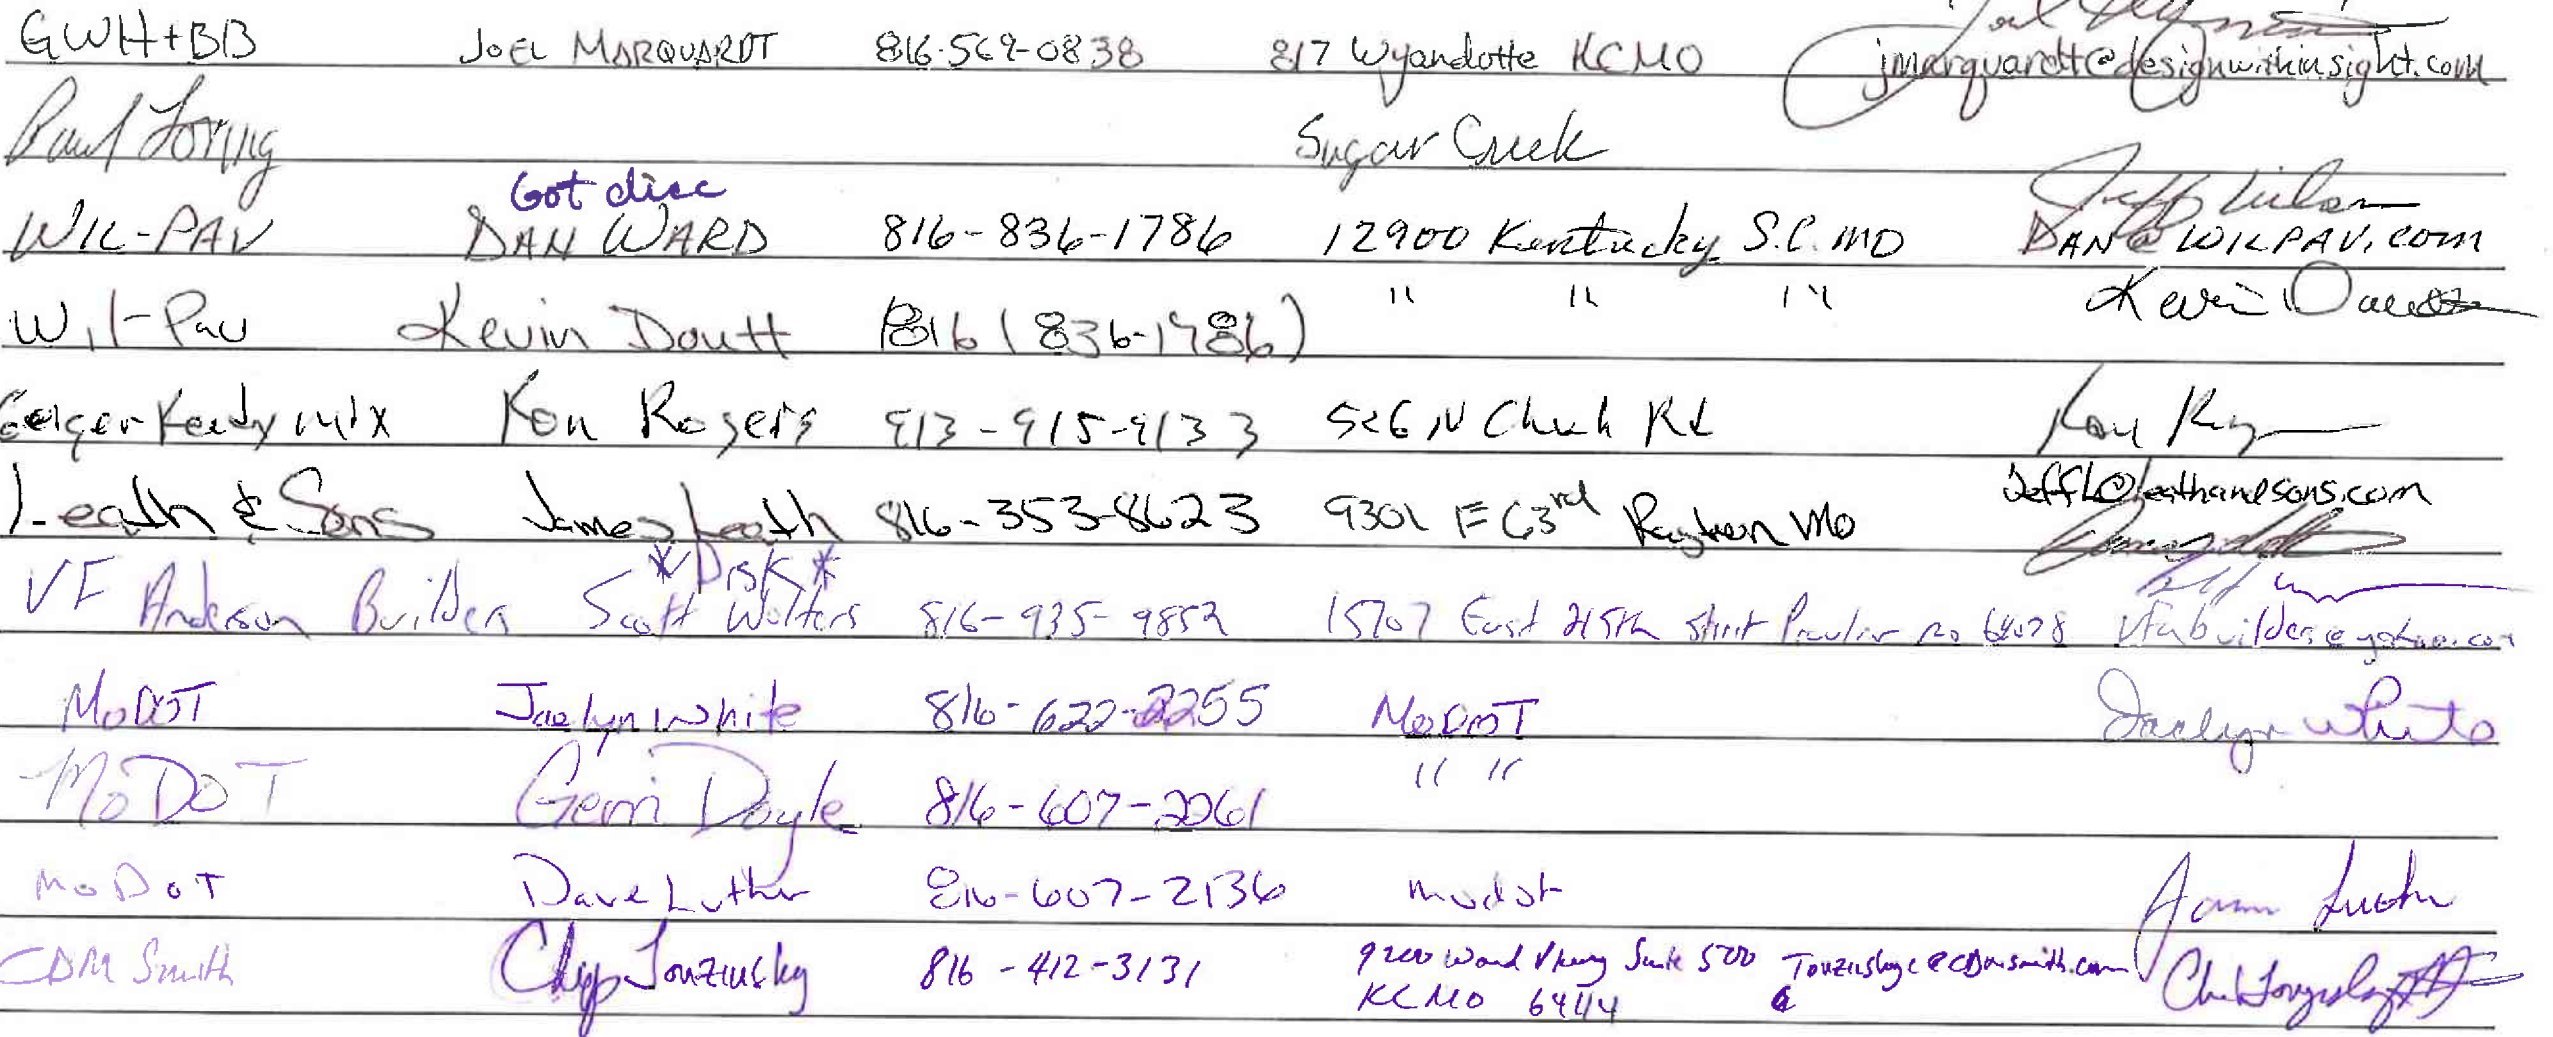 GWH+BB JOEL MARQUARDT 816-569-0838 817 Wyandotte KCMO jmarquardt@designwithinsight.com
Paul Loring Sugar Creek
Got disc Jeff
WIL-PAV DAN WARD 816-836-1786 12900 Kentucky S.C. MO DAN@WILPAV.com
Wil-Pav Kevin Doutt (816 (836-1786) " " " Kevin Doutt
Geiger Ready mix Ron Rogers 913-915-9133 526 N Church Rd
JeffL@leathandsons.com
Leath & Sons James Leath 816-353-8623 9301 E 63rd Raytown Mo
*Disk*
VF Anderson Builders Scott Wolters 816-935-9852 15707 East 215th Street Peculiar Mo 64078 vfabuilders@yahoo.com
MoDOT Jaclyn White 816-622-2255 MoDOT Jaclyn White
MoDOT Gerri Doyle 816-607-2261 " "
MoDOT Dave Luther 816-607-2136 modot
CDM Smith Chip Touzinsky 816-412-3131 9200 Ward Pkwy Suite 500 Touzinskyc@CDMsmith.com
KCMO 64114